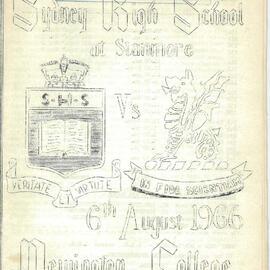 Sydney High School
at Stanmore
S-H-S
Vs
VERITATE ET VIRTUTE
IN FIDE SCIENTIAM
6th August 1966
Newington College